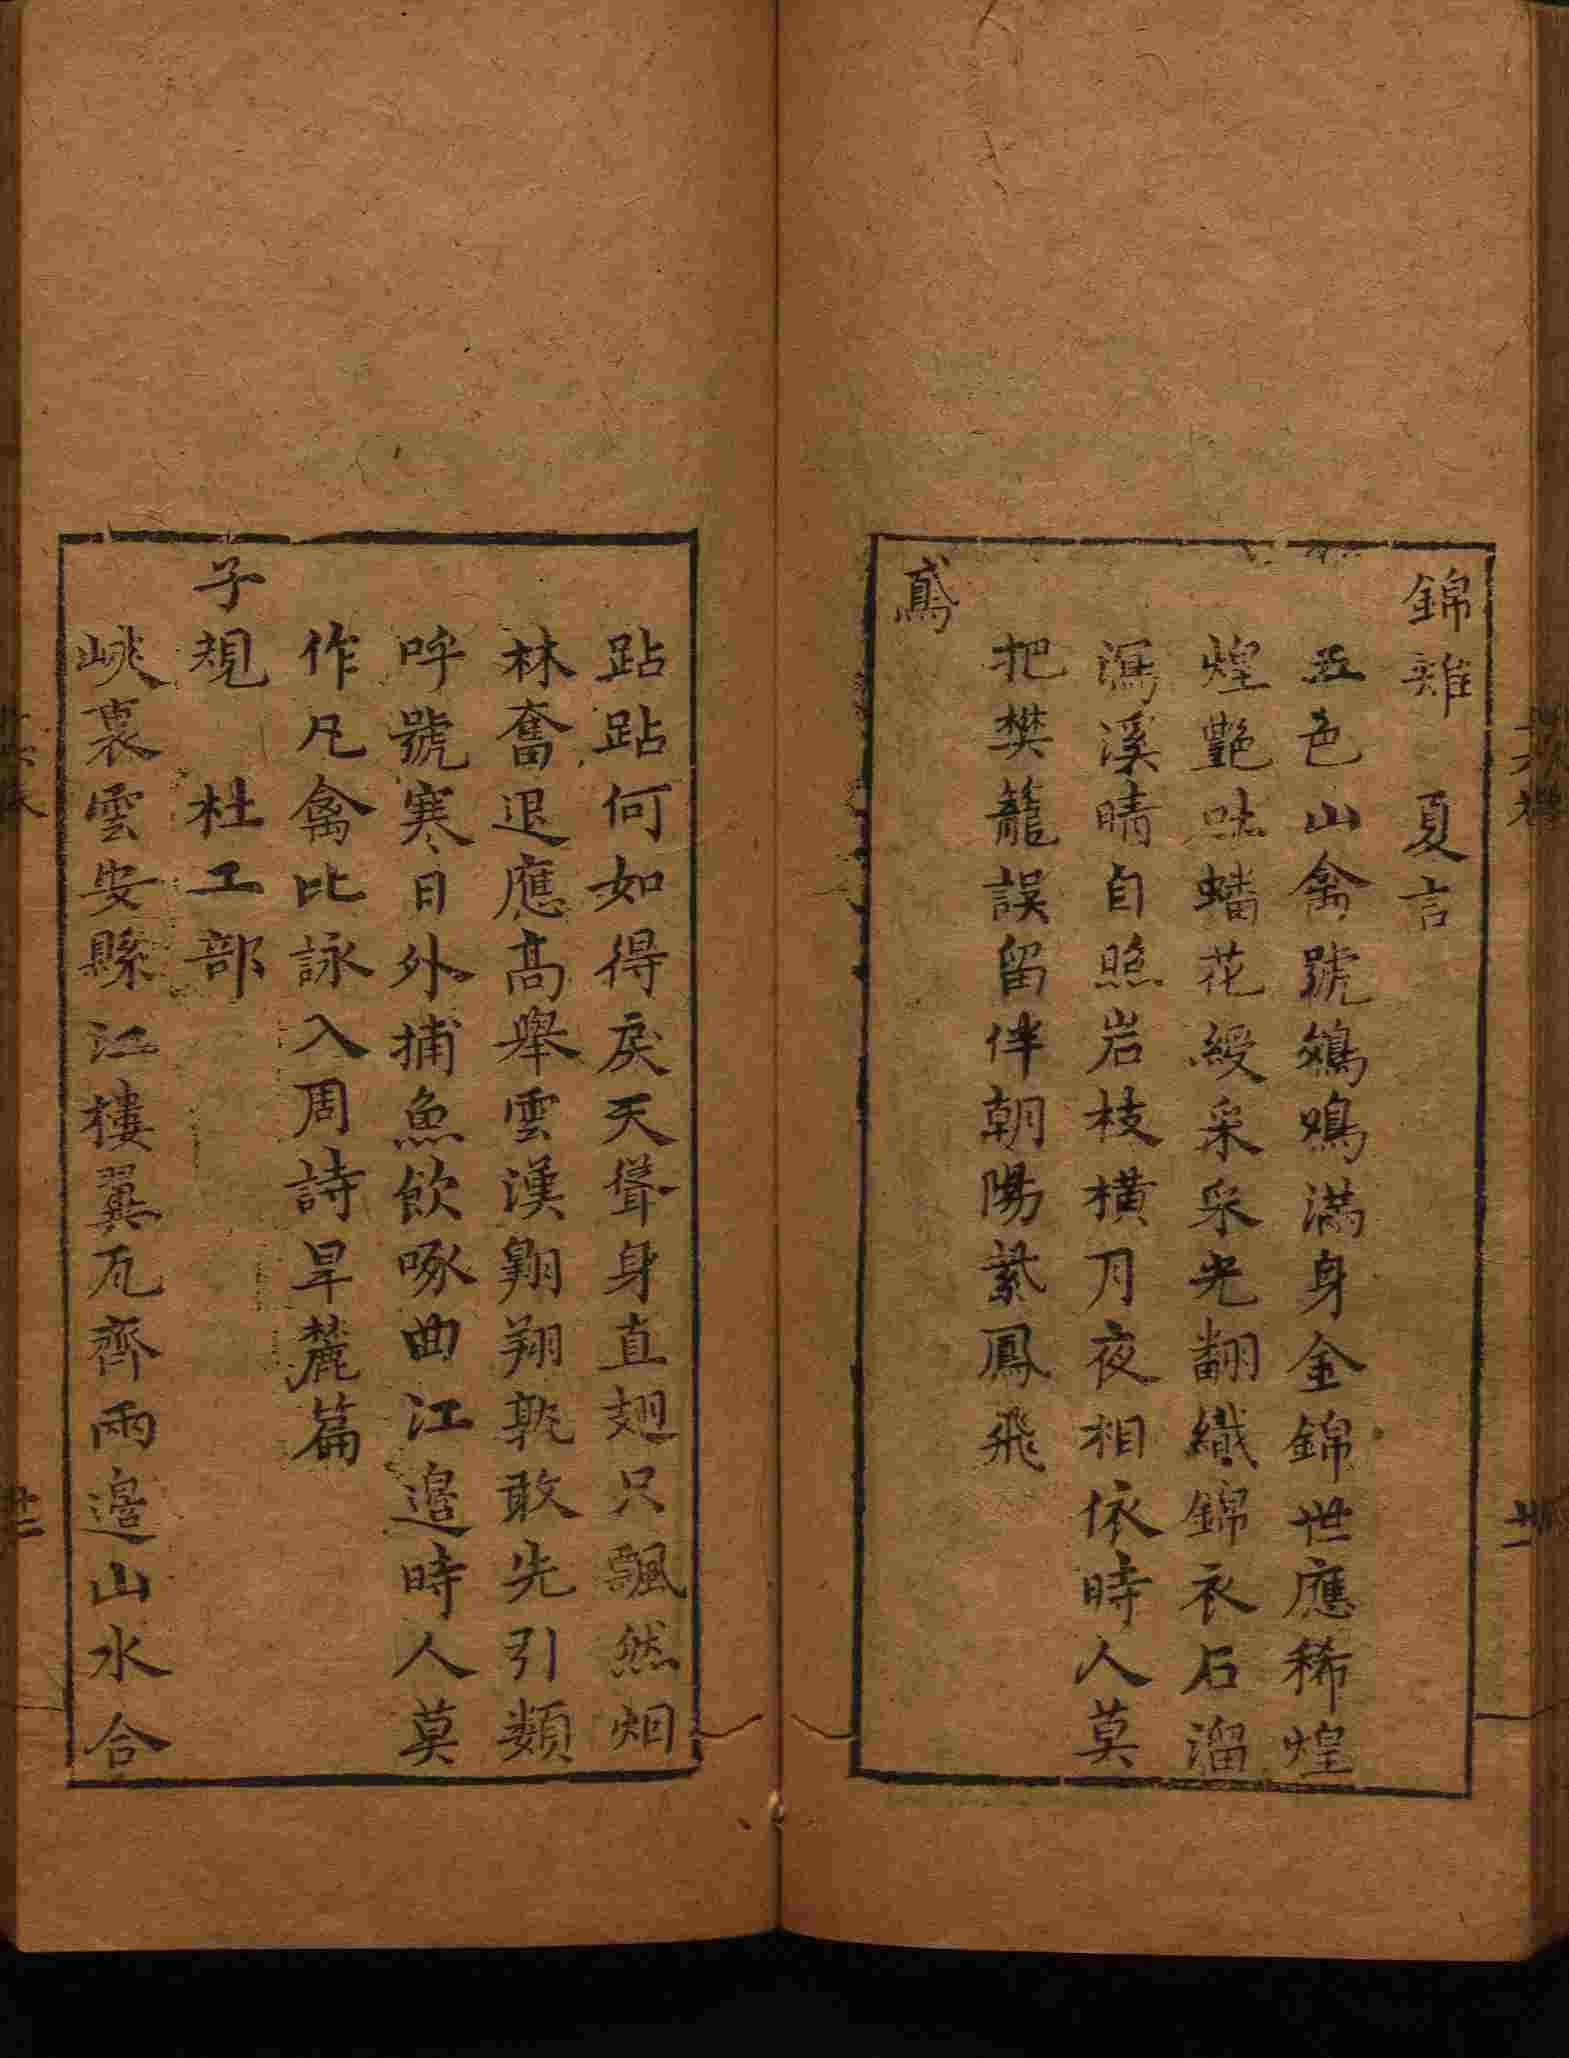 錦雞 夏言
五色山禽號鵕鳷滿身金錦世應稀煌
煌艷味蟠花綬采采光翻織錦衣石溜
瀉溪晴自照岩枝橫月夜相依時人莫
把樊籠誤留伴朝陽蓺鳳飛
鳶
跕跕何如得戾天聳身直翅只飄然烟
林奮退應高舉雲漢翱翔孰敢先引類
呼號寒日外捕魚飲啄曲江邉時人莫
作凡禽比詠入周詩旱麓篇
子規 杜工部
峽裏雲安縣江樓翼瓦齊兩邉山水合